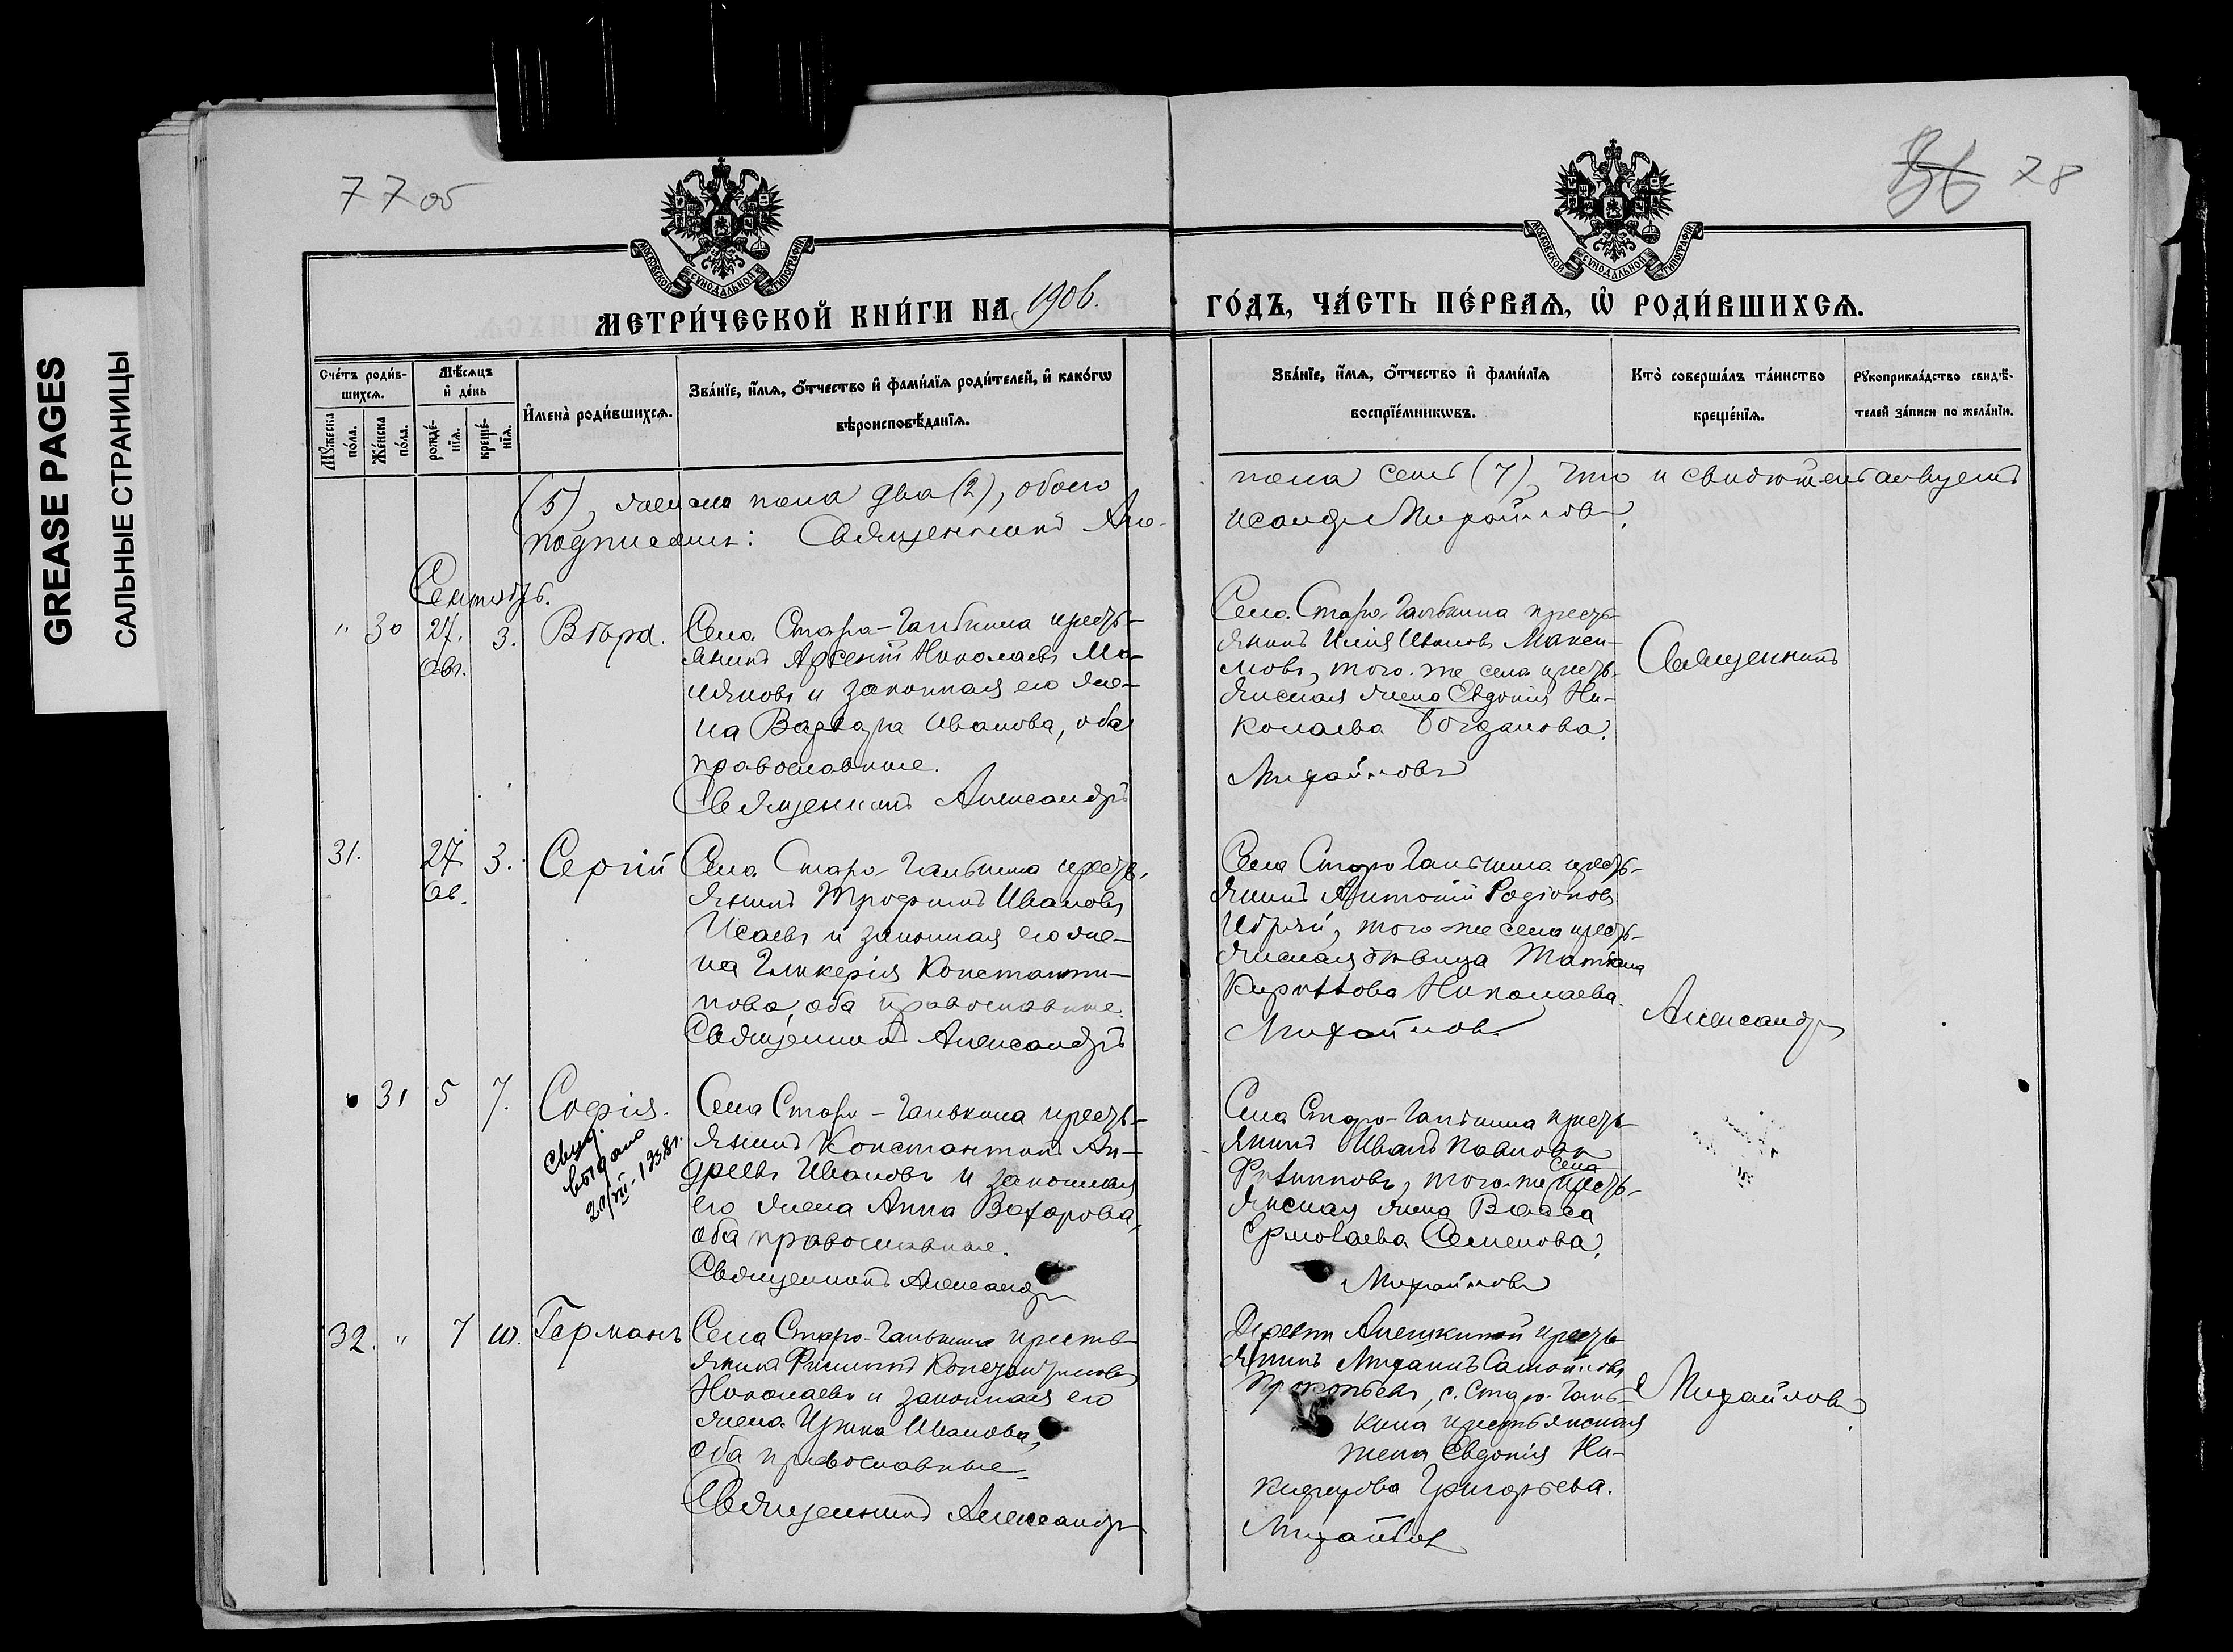 GREASE PAGES
САЛЬНЫЕ СТРАНИЦЫ
77 об
78
МОСКОВСКОЙ СѴНОДАЛЬНОЙ ТИПОГРАФІИ
МОСКОВСКОЙ СѴНОДАЛЬНОЙ ТИПОГРАФІИ
МЕТРИ́ЧЕСКОЙ КНИ́ГИ НА 1906.
ГО́ДЪ, ЧА́СТЬ ПЕ́РВАѦ, Ѡ҆ РОДИ́ВШИХСѦ.
Сче́тъ роди́вшихсѧ.
Мꙋ́жеска по́ла.
Же́нска по́ла.
Мѣ́сѧцъ и҆ де́нь
рожде́нїѧ.
креще́нїѧ.
И҆мена̀ роди́вшихсѧ.
Зва́нїе, и҆́мѧ, о҆́тчество и҆ фами́лїѧ роди́телей, и҆ како́гѡ
вѣроисповѣ́данїѧ.
Зва́нїе, и҆́мѧ, о҆́тчество и҆ фами́лїѧ
воспрїе́мникѡвъ.
Кто̀ соверша́лъ та́инство
креще́нїѧ.
Рꙋкоприкла́дство свидѣ́-
телей за́писи по жела́нїю.
(5), женска пола два (2), обоего
подписами: Священникъ Але-
пола семь (7), что и свидѣтельствуетъ
ксандръ Михайловъ.
Сентябрь.
" 30 27. авг. 3. Вѣра.
Села Старо-Ганькина кресть-
янинъ Арсеній Николаевъ
и законная его же-
на Варвара Иванова, оба
православные.
Священникъ Александръ
Села Старо-Ганькина кресть-
янинъ Илія Ивановъ Макси-
мовъ, того-же села кресть-
янская жена Евдокія Ни-
колаева Богданова.
Михайловъ
Священникъ
31. 27 ав. 3. Сергій
Села Старо-Ганькина кресть-
янинъ Трофимъ Ивановъ
Исаевъ и законная его же-
на Гликерія Константи-
нова, оба православные.
Священникъ Александръ
Села Старо Ганькина кресть-
янинъ Антоній Родіоновъ
того-же села кресть-
янская дѣвица Татіана
Кириллова Николаева.
Михайловъ.
Александръ
" 31 5 7. Софія.
свид.
выдано
21/VII-1938г.
Села Старо-Ганькина кресть-
янинъ Константинъ Ан-
дреевъ Ивановъ и законная
его жена Анна
оба православные.
Священникъ Александръ
Села Старо-Ганькина кресть-
янинъ Иванъ Павловъ
Филипповъ, того-же села кресть-
янская жена Васса
Ермолаева Семенова.
Михайловъ
32. " 7 10. Германъ
Села Старо-Ганькина кресть-
янинъ Филиппъ
Николаевъ и законная его
жена Ирина Иванова,
оба православные.
Священникъ Александръ
Деревни Алешкиной кресть-
янинъ Михаилъ Самойловъ
Прокопьевъ, с. Старо-Гань-
кина крестьянская
жена Евдокія Ни-
кифорова Григорьева.
Михайловъ
Михайловъ.